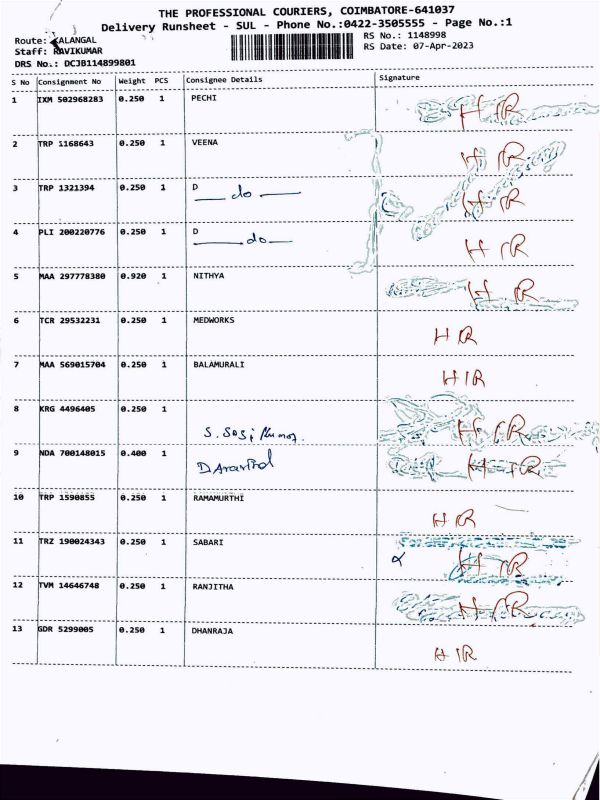 THE PROFESSIONAL COURIERS, COIMBATORE-641037
Delivery Runsheet - SUL - Phone No.:0422-3505555 - Page No.:1
Route: KALANGAL
RS No.: 1148998
Staff: RAVIKUMAR
RS Date: 07-Apr-2023
DRS No.: DCJB114899801
S No Consignment No Weight PCS Consignee Details Signature
1 IXM 502968283 0.250 1 PECHI HIR
2 TRP 1168643 0.250 1 VEENA HIR
3 TRP 1321394 0.250 1 D HIR
do
4 PLI 200220776 0.250 1 D HIR
do
5 MAA 297778380 0.920 1 NITHYA HIR
6 TCR 29532231 0.250 1 MEDWORKS HIR
7 MAA 569015704 0.250 1 BALAMURALI HIR
8 KRG 4496405 0.250 1 HIR
S. Sasi Kumar
9 NDA 700148015 0.400 1 HIR
D Aravind
10 TRP 1590855 0.250 1 RAMAMURTHI HIR
11 TRZ 190024343 0.250 1 SABARI HIR
12 TVM 14646748 0.250 1 RANJITHA HIR
13 GDR 5299005 0.250 1 DHANRAJA HIR